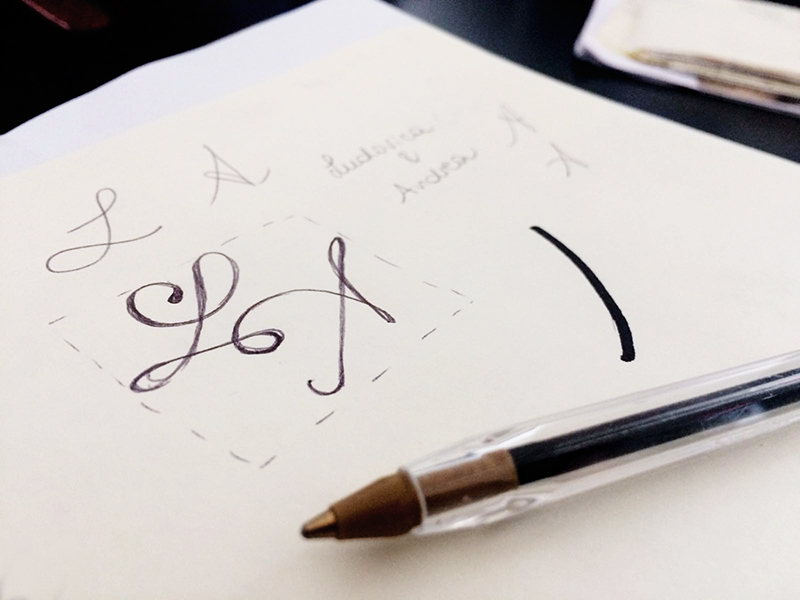 L A
Ludovica
&
Andrea
A
A
L A